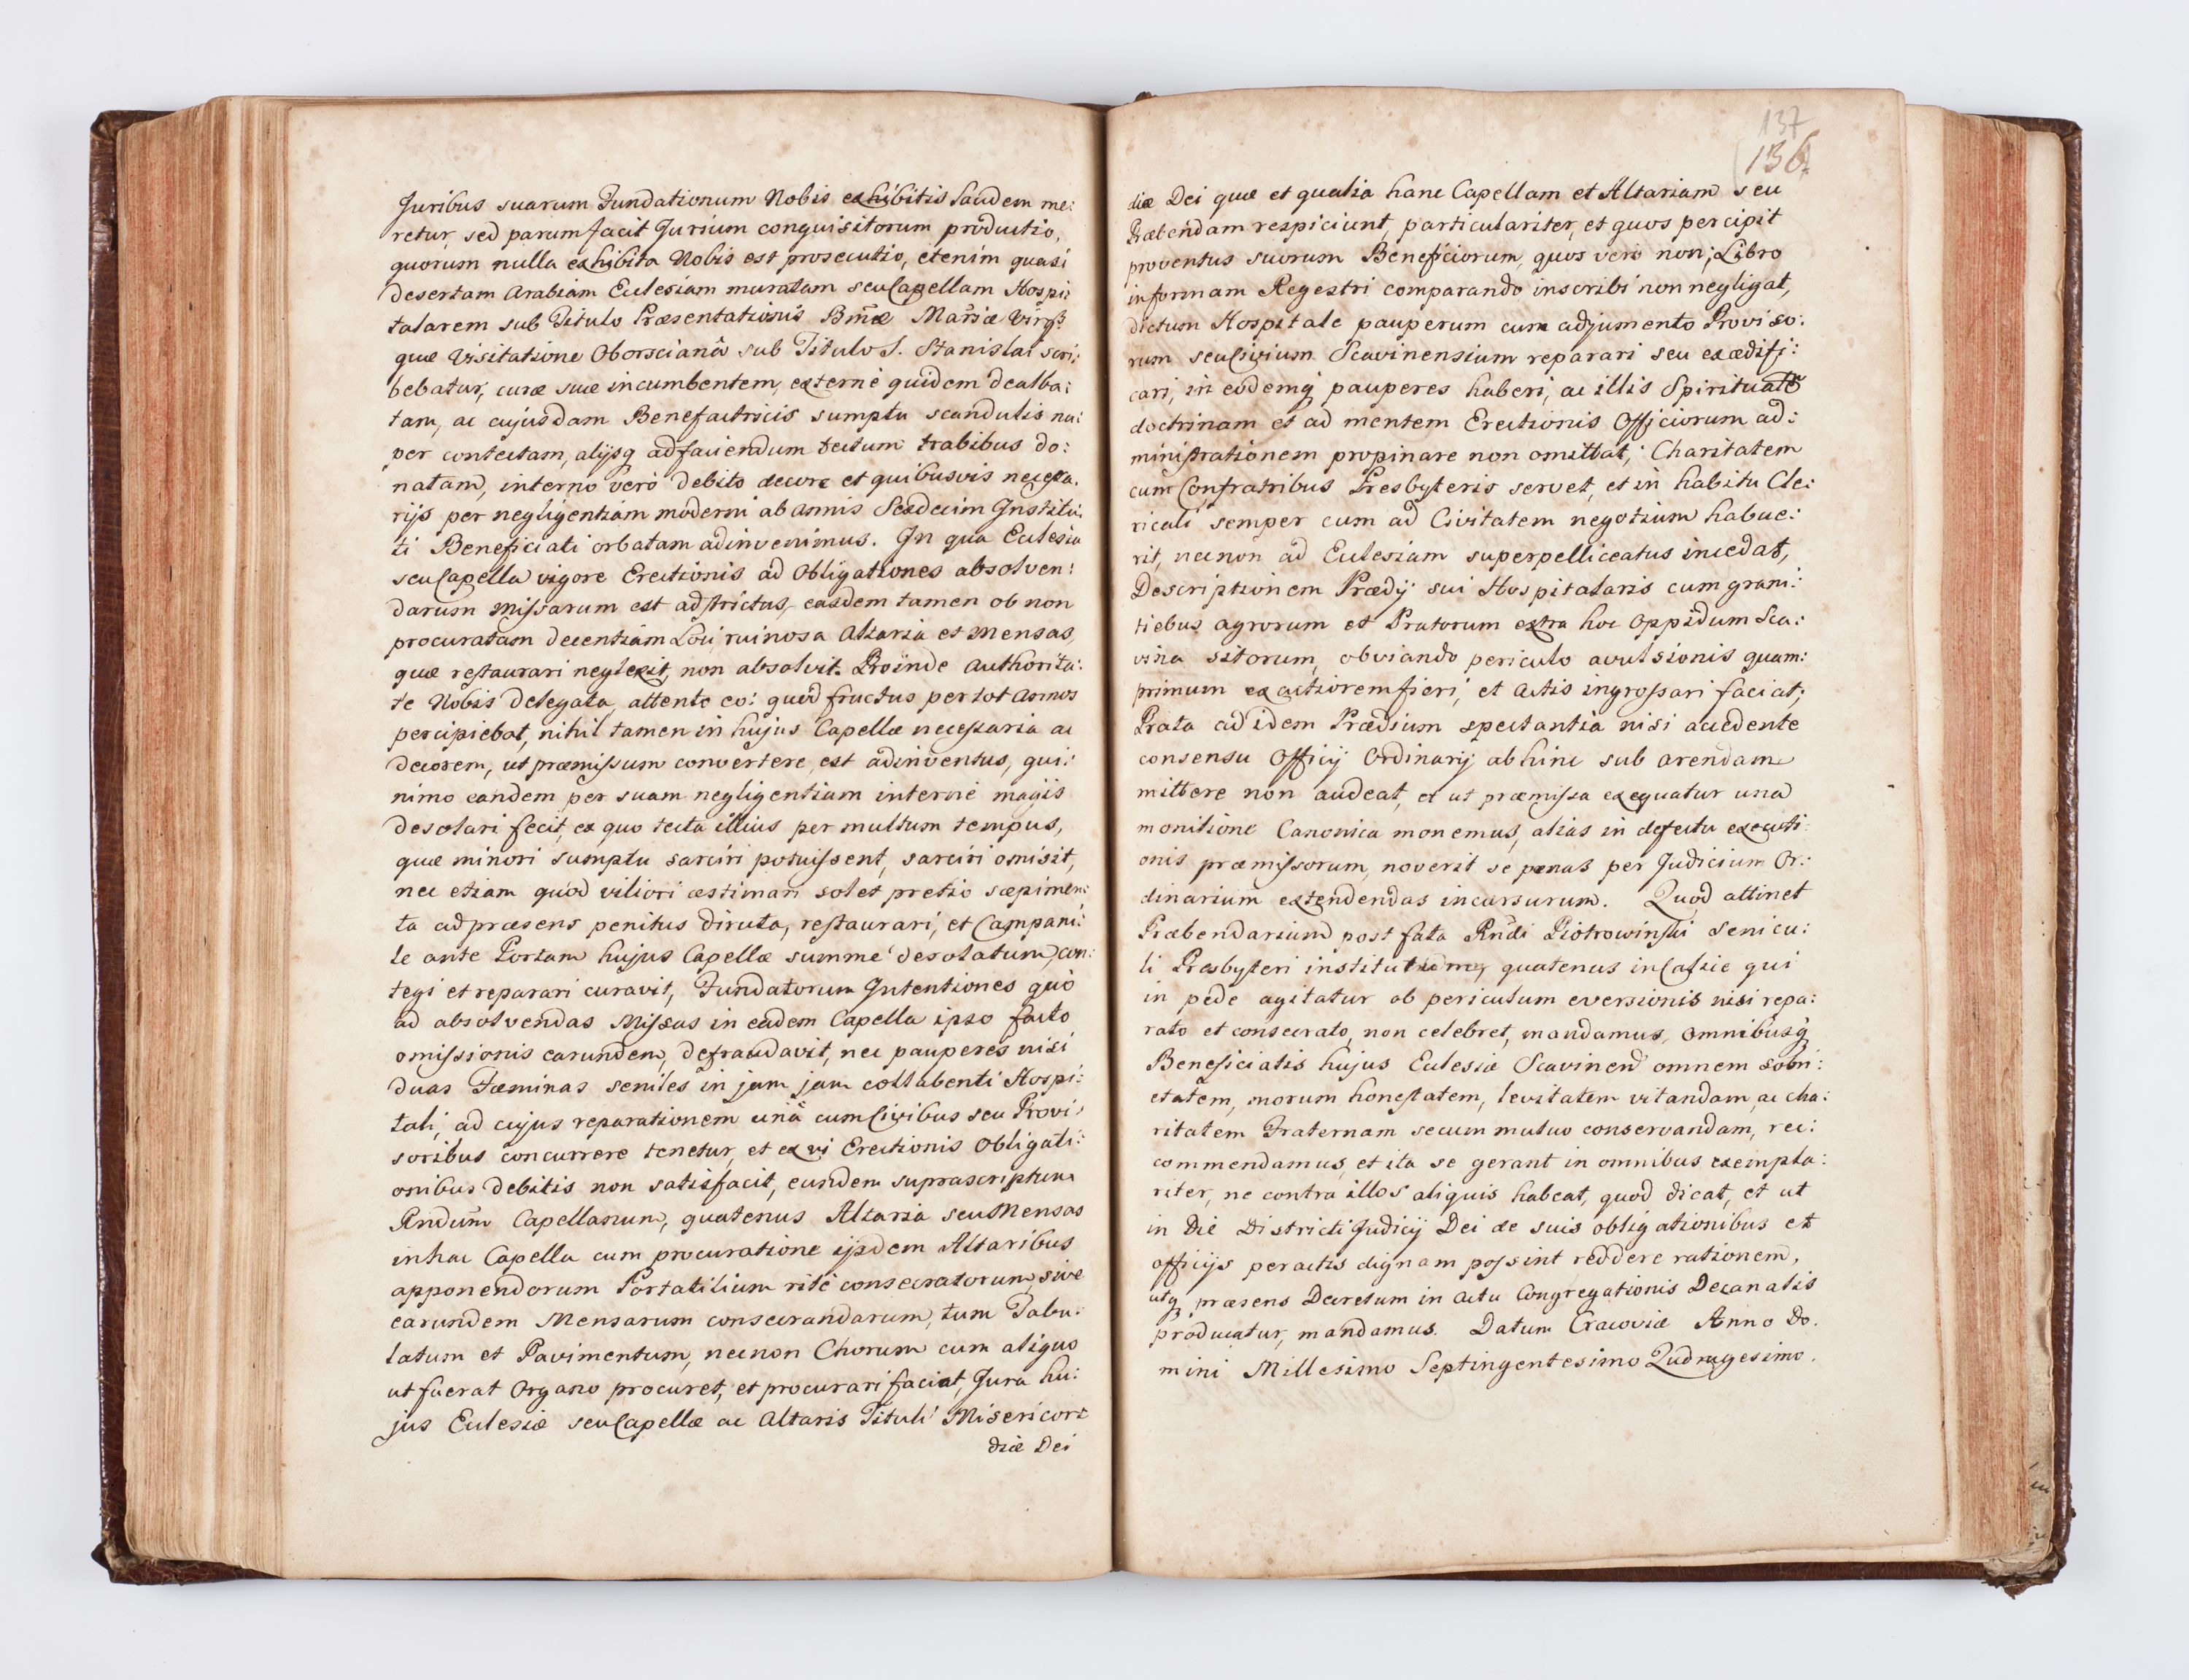 Juribus suarum Fundationum Nobis exhibitis laudem me:
retur, sed parum facit Jurium conquisitorum productio,
quorum nulla exhibita Nobis est prosecutio, etenim quasi
desertam Arabiam Eclesiam muratam seu Capellam Hospi:
talarem sub Titulo Præsentationis Bmæ Mariæ Virg:
quæ Visitatione Oborsciana sub Titulo S. Stanislai scri:
bebatur, curæ suæ incumbentem, externe quidem dealba:
tam, ac cujusdam Benefactricis sumptu scandulis nu:
per contectam, alijsq ad faciendum tectum trabibus do:
natam, interno verò debito decore et quibusvis necessa:
rijs per negligentiam moderni ab annis Sexdecim Institu:
ti Beneficiati orbatam adinvenimus. In qua Eclesia
seu Capella vigore Erectionis ad Obligationes absolven:
darum Missarum est adstrictus, easdem tamen ob non
procuratam decentiam Loci ruinosa Altaria et Mensas,
quæ restaurari neglexit, non absolvit. Proinde Authorita:
te Nobis delegata, attento eo: quod fructus per tot Annos
percipiebat, nihil tamen in hujus Capellæ necessaria ac
decorem, ut præmissum convertere, est adinventus, qui:
nimo eandem per suam negligentiam interne magis
desolari fecit, ex quo tecta illius per multum tempus,
quæ minori sumptu sarciri potuissent, sarciri omisit,
nec etiam quod viliori æstimari solet pretio sæpimen:
ta ad præsens penitus diruta, restaurari, et Campani:
le ante Portam hujus Capellæ summe desolatum, con:
tegi et reparari curavit, Fundatorum Intentiones quo
ad absolvendas Missas in eadem Capella ipso facto
omissionis earundem, defraudavit, nec pauperes nisi
duas Fæminas seniles in jam jam collabenti Hospi:
tali, ad cujus reparationem unà cum Civibus seu Provi:
soribus concurrere tenetur, et ex vi Erectionis Obligati:
onibus debitis non satisfacit, eundem suprascriptum
Rndum Capellanum, quatenus Altaria seu Mensas
in hac Capella cum procuratione ijsdem Altaribus
apponendorum Portatilium ritè consecratorum, sive
earundem Mensarum consecrandarum, tum Tabu:
latum et Pavimentum, necnon Chorum cum aliquo
ut fuerat Organo procuret, et procurari faciat, Jura hu:
jus Eclesiæ seu Capellæ ac Altaris Tituli Misericor:
diæ Dei
137
136
diæ Dei quæ et qualia hanc Capellam et Altariam seu
Præbendam respiciunt, particulariter, et quos percipit
proventus suorum Beneficiorum, quos verò non, Libro
in formam Regestri comparando inscribi non negligat,
dictum Hospitale pauperum cum adjumento Proviso:
rum seu Civium Scavinensium reparari seu exædifi:
cari, in eodemq pauperes haberi, ac illis Spirituale
doctrinam et ad mentem Erectionis Officiorum ad:
ministrationem propinare non omittat, Charitatem
cum Confratribus Presbyteris servet, et in habitu Cle:
ricali semper cum ad Civitatem negotium habue:
rit, necnon ad Eclesiam superpelliceatus incedat,
Descriptionem Prædij sui Hospitalaris cum grani:
tiebus agrorum et Pratorum extra hoc Oppidum Sca:
vina sitorum, obviando periculo avulsionis quam:
primum exactiorem fieri, et Actis ingrossari faciat;
Prata ad idem Prædium spectantia nisi accedente
consensu Officij Ordinarij abhinc sub arendam
mittere non audeat, et ut præmissa exequatur una
monitione Canonica monemus, alias in defectu executi:
onis præmissorum, noverit se pænas per Judicium Or:
dinarium extendendas incursurum. Quod attinet
Præbendarium post fata Rndi Piotrowinski senicu:
li Presbyteri quatenus in Calice qui
in pede agitatur ob periculum eversionis nisi repa:
rato et consecrato, non celebret, mandamus, omnibusq
Beneficiatis hujus Eclesiæ Scavinen omnem sobri:
etatem, morum honestatem, levitatem vitandam, ac cha:
ritatem Fraternam secum mutuo conservandam, rec:
commendamus, et ita se gerant in omnibus exempla:
riter, ne contra illos aliquis habeat, quod dicat, et ut
in Die Districti Judicij Dei de suis obligationibus et
officijs peractis dignam possint reddere rationem,
utq præsens Decretum in Actu Congregationis Decanalis
producatur, mandamus. Datum Cracoviæ Anno Do:
mini Millesimo Septingentesimo Qudragesimo.